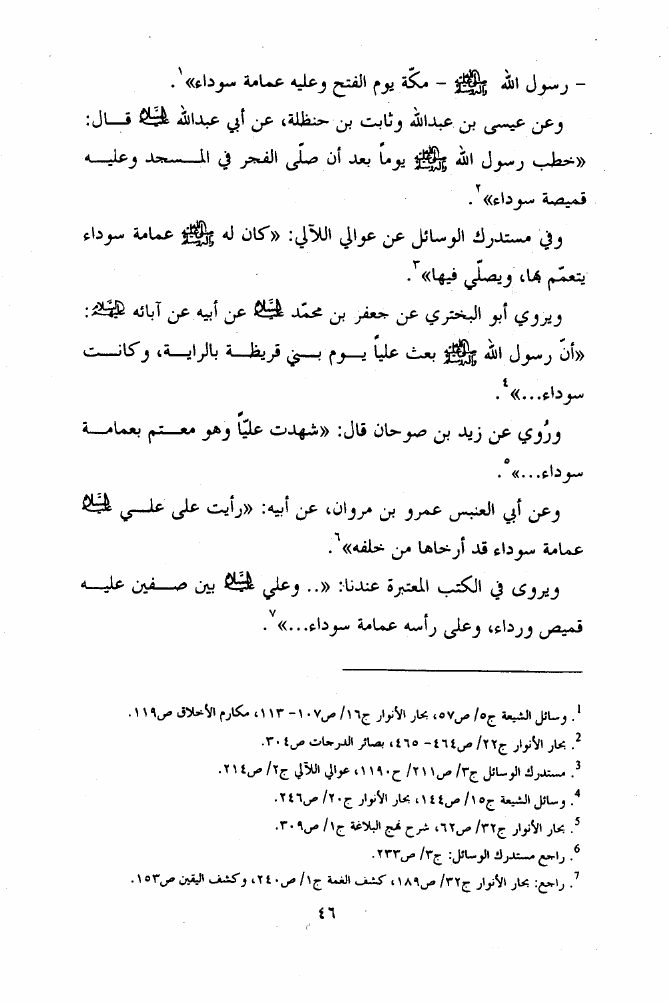 – رسول الله ﷺ – مكّة يوم الفتح وعليه عمامة سوداء»١.
وعن عيسى بن عبدالله وثابت بن حنظلة، عن أبي عبدالله عليه السلام قـــال:
«خطب رسول الله ﷺ يوماً بعد أن صلّى الفجر في المـــسجد وعليـــه
قميصة سوداء»٢.
وفي مستدرك الوسائل عن عوالي اللآلي: «كان له ﷺ عمامة سوداء
يتعمّم بها، ويصلّي فيها»٣.
ويروي أبو البختري عن جعفر بن محمّد عليه السلام عن أبيه عن آبائه عليهم السلام:
«أنّ رسول الله ﷺ بعث علياً يـــوم بـــني قريظـــة بالرايـــة، وكانـــت
سوداء...»٤.
ورُوي عن زيد بن صوحان قال: «شهدت عليّاً وهو معـــتم بعمامـــة
سوداء...»٥.
وعن أبي العنبس عمرو بن مروان، عن أبيه: «رأيت على علـــي عليه السلام
عمامة سوداء قد أرخاها من خلفه»٦.
ويروى في الكتب المعتبرة عندنا: «.. وعلي عليه السلام بين صـــفين عليـــه
قميص ورداء، وعلى رأسه عمامة سوداء...»٧.
1. وسائل الشيعة ج٥/ ص٥٧، بحار الأنوار ج١٦/ ص١٠٧– ١١٣، مكارم الأخلاق ص١١٩.
2. بحار الأنوار ج٢٢/ ص٤٦٤– ٤٦٥، بصائر الدرجات ص٣٠٤.
3. مستدرك الوسائل ج٣/ ص٢١١/ ح١١٩٠، عوالي اللآلي ج٢/ ص٢١٤.
4. وسائل الشيعة ج١٥/ ص١٤٤، بحار الأنوار ج٢٠/ ص٢٤٦.
5. بحار الأنوار ج٣٢/ ص٦٢، شرح نهج البلاغة ج١/ ص٣٠٩.
6. راجع مستدرك الوسائل: ج٣/ ص٢٣٣.
7. راجع: بحار الأنوار ج٣٢/ ص١٨٩، كشف الغمة ج١/ ص٢٤٠، وكشف اليقين ص١٥٣.
٤٦